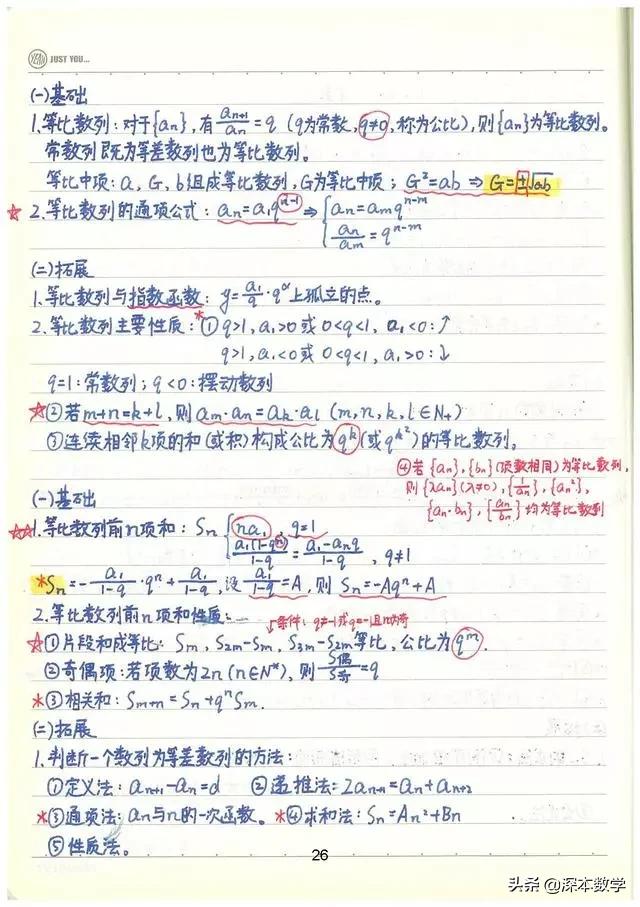 JUST YOU...
(一)基础
1.等比数列：对于{an}，有 an+1/an = q (q为常数，q≠0，称为公比)，则{an}为等比数列。
常数列既为等差数列也为等比数列。
等比中项：a，G，b组成等比数列，G为等比中项；G²=ab ⇒ G=±√ab
☆ 2.等比数列的通项公式：an=a1qⁿ⁻¹ ⇒ { an=amqⁿ⁻ᵐ
an/am = qⁿ⁻ᵐ
(二)拓展
1.等比数列与指数函数：y=a1/q·qˣ上孤立的点。
2.等比数列主要性质：*①q>1，a1>0或0<q<1，a1<0：↑
q>1，a1<0或0<q<1，a1>0：↓
q=1：常数列；q<0：摆动数列
☆②若m+n=k+l，则am·an=ak·al (m,n,k,l∈N+)
③连续相邻k项的和(或积)构成公比为qᵏ(或q^k²)的等比数列。
④若{an}，{bn}(项数相同)为等比数列，
则{λan}(λ≠0)，{1/an}，{an²}，
{an·bn}，{an/bn}均为等比数列
(一)基础
☆☆1.等比数列前n项和：Sn { na1，q=1
a1(1-qⁿ)/1-q = a1-anq/1-q，q≠1
*Sn=-a1/1-q·qⁿ+a1/1-q，设a1/1-q=A，则Sn=-Aqⁿ+A
2.等比数列前n项和性质：
条件：q≠-1或q=-1且m为奇
☆①片段和成等比：Sm，S2m-Sm，S3m-S2m等比，公比为qᵐ.
②奇偶项：若项数为2n(n∈N*)，则S偶/S奇=q
*③相关和：Sm+n=Sn+qⁿSm.
(二)拓展
1.判断一个数列为等差数列的方法：
①定义法：an+1-an=d ②递推法：2an+1=an+an+2
*③通项法：an与n的一次函数。 *④求和法：Sn=An²+Bn
⑤性质法。
26
头条 @深本数学